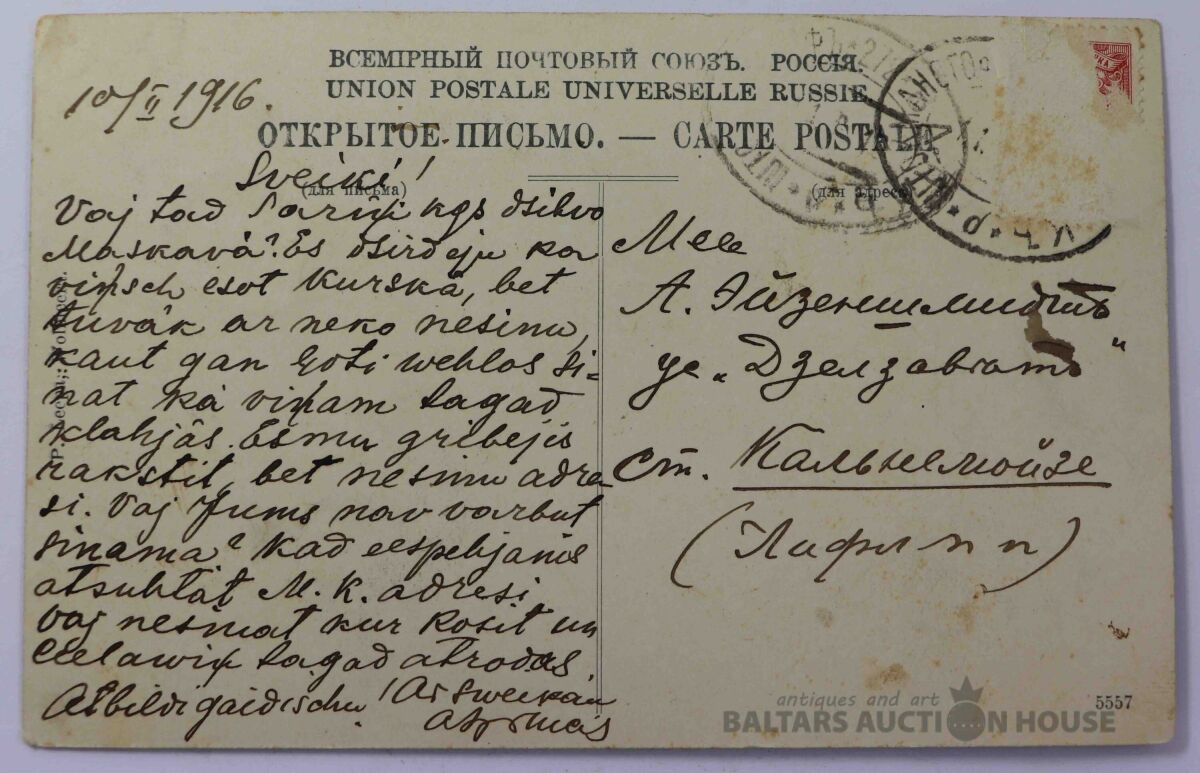 ВСЕМІРНЫЙ ПОЧТОВЫЙ СОЮЗЪ. РОССІЯ.
UNION POSTALE UNIVERSELLE RUSSIE
ОТКРЫТОЕ ПИСЬМО. — CARTE POSTALE
(для письма)
(для адреса)
10/II 1916.
Sveiki!
Vaj tad kgs dsilvo
Maskavâ? Es dsirdeju ka
viņsch esot Kurskâ, bet
tuvâk ar neko nesinu,
kaut gan ļoti wehlos si-
nat kâ viņam tagad
klahjâs. Esmu gribejis
rakstit, bet nesinu adre-
si. Vaj Jums nav varbut
sinama? Kad eespehjams
atsuhtat M. K. adresi
Vaj nesinat kur Rosit un
Ceelawiņ tagad atrodas
Atbildi gaidischu! Ar sweikân
А. Эйзеншмидтъ
„Дзелзавтатъ“
Ст. Кальнемойзе
5557
antiques and art
BALTARS AUCTION HOUSE